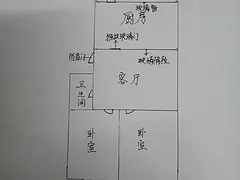 玻璃窗
厨房
推拉玻璃门
防盗门
玻璃隔段
客厅
卫
生
间
卧
室
卧
室